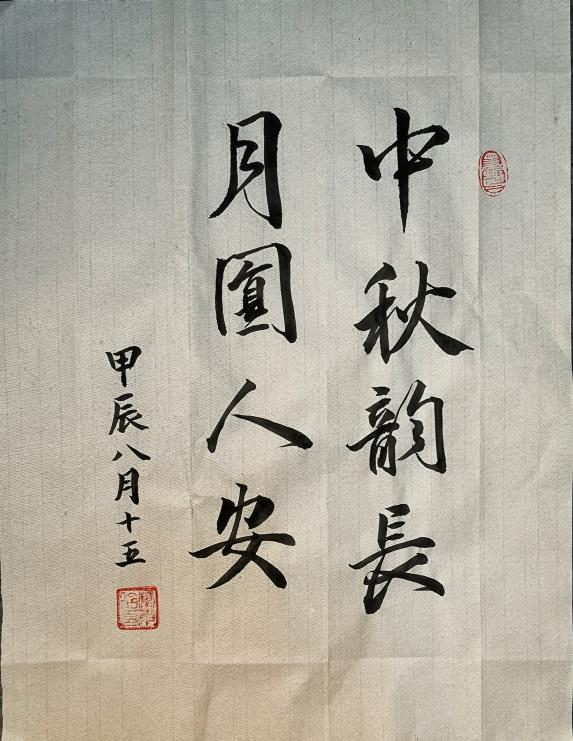 中秋韵長
月圓人安
甲辰八月十五